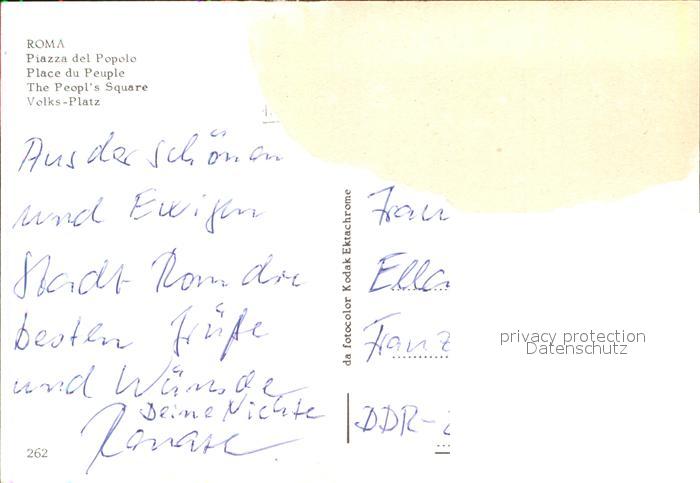 ROMA
Piazza del Popolo
Place du Peuple
The Peopl's Square
Volks-Platz
Aus der schönen
und Ewigen
Stadt Rom die
besten Grüße
und Wünsde
Deine Nichte
Renate
262
da fotocolor Kodak Ektachrome
Frau
Ella
Franz
DDR-
privacy protection
Datenschutz